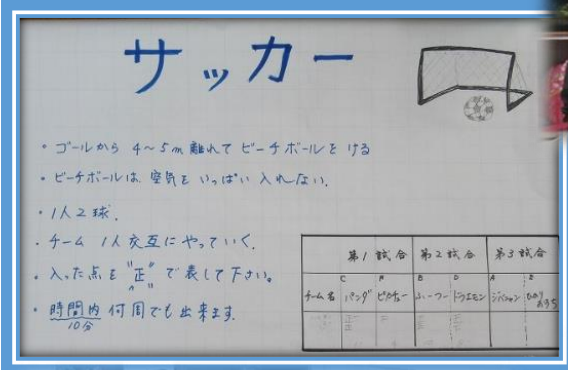 サッカー
・ゴールから 4〜5m 離れて ビーチボールを ける
・ビーチボールは、空気を いっぱい 入れない。
・1人2球.
・チーム 1人交互に やっていく.
・入った点を "正" で 表して下さい。
・時間内 何周でも出来ます.
10分
第1試合 第2試合 第3試合
C A B D A E
チーム名 パンダ ピカチュー ふーつー ドラエモン ジャイアン